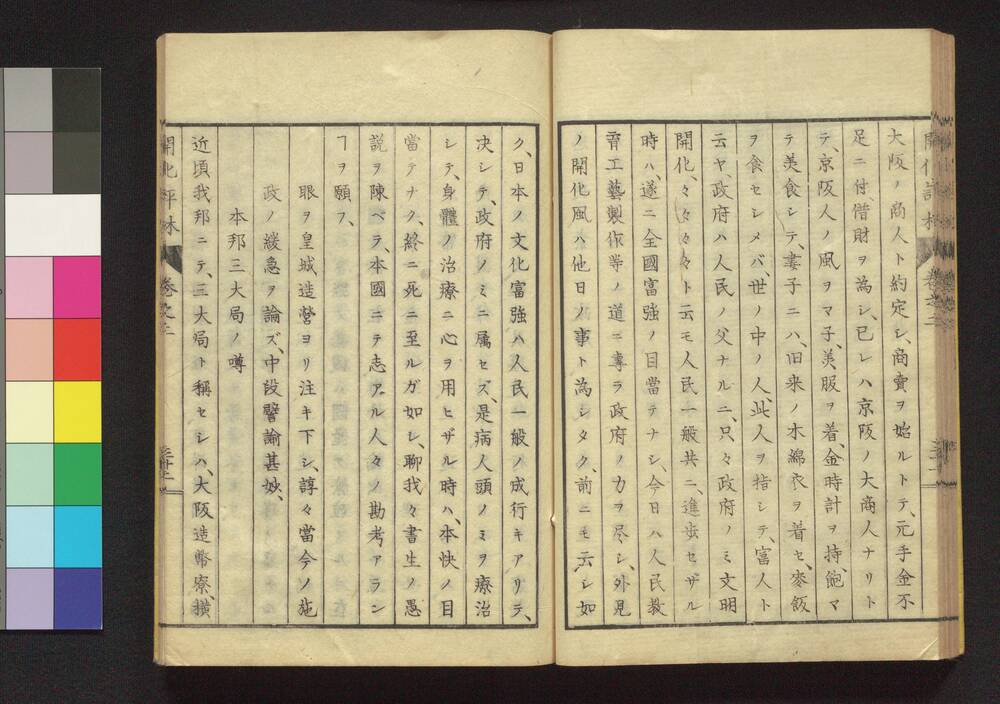 大阪ノ商人ト約定シ、商賣ヲ始ルトテ、元手金不
足ニ付、借財ヲ為シ、已レハ京阪ノ大商人ナリト
テ、京阪人ノ風ヲマ子、美服ヲ着、金時計ヲ持、飽マ
テ美食シテ、妻子ニハ、旧来ノ木綿衣ヲ着セ、麥飯
ヲ食セシメバ、世ノ中ノ人、此人ヲ指シテ、富人ト
云ヤ、政府ハ人民ノ父ナルニ、只々政府ノミ文明
開化、々々々々ト云モ人民一般共ニ、進歩セザル
時ハ、遂ニ全國富強ノ目當テナシ、今日ハ人民教
育工藝製作等ノ道ニ專ラ政府ノ力ヲ尽シ、外見
ノ開化風ハ他日ノ事ト為シタク、前ニモ云シ如
ク、日本ノ文化富強ハ人民一般ノ成行キアリテ、
决シテ、政府ノミニ属セズ、是病人頭ノミヲ療治
シテ、身體ノ治療ニ心ヲ用ヒザル時ハ、本快ノ目
當テナク、終ニ死ニ至ルガ如シ、聊我々書生ノ愚
説ヲ陳ベラ、本國ニテ志アル人々ノ勘考アラン
ヿヲ願フ、
眼ヲ皇城造營ヨリ注キ下シ、諄々當今ノ施
政ノ緩急ヲ論ズ、中段譬諭甚妙、
本邦三大局ノ噂
近頃我邦ニテ、三大局ト稱セシハ、大阪造幣寮、横
開化評林
巻之二